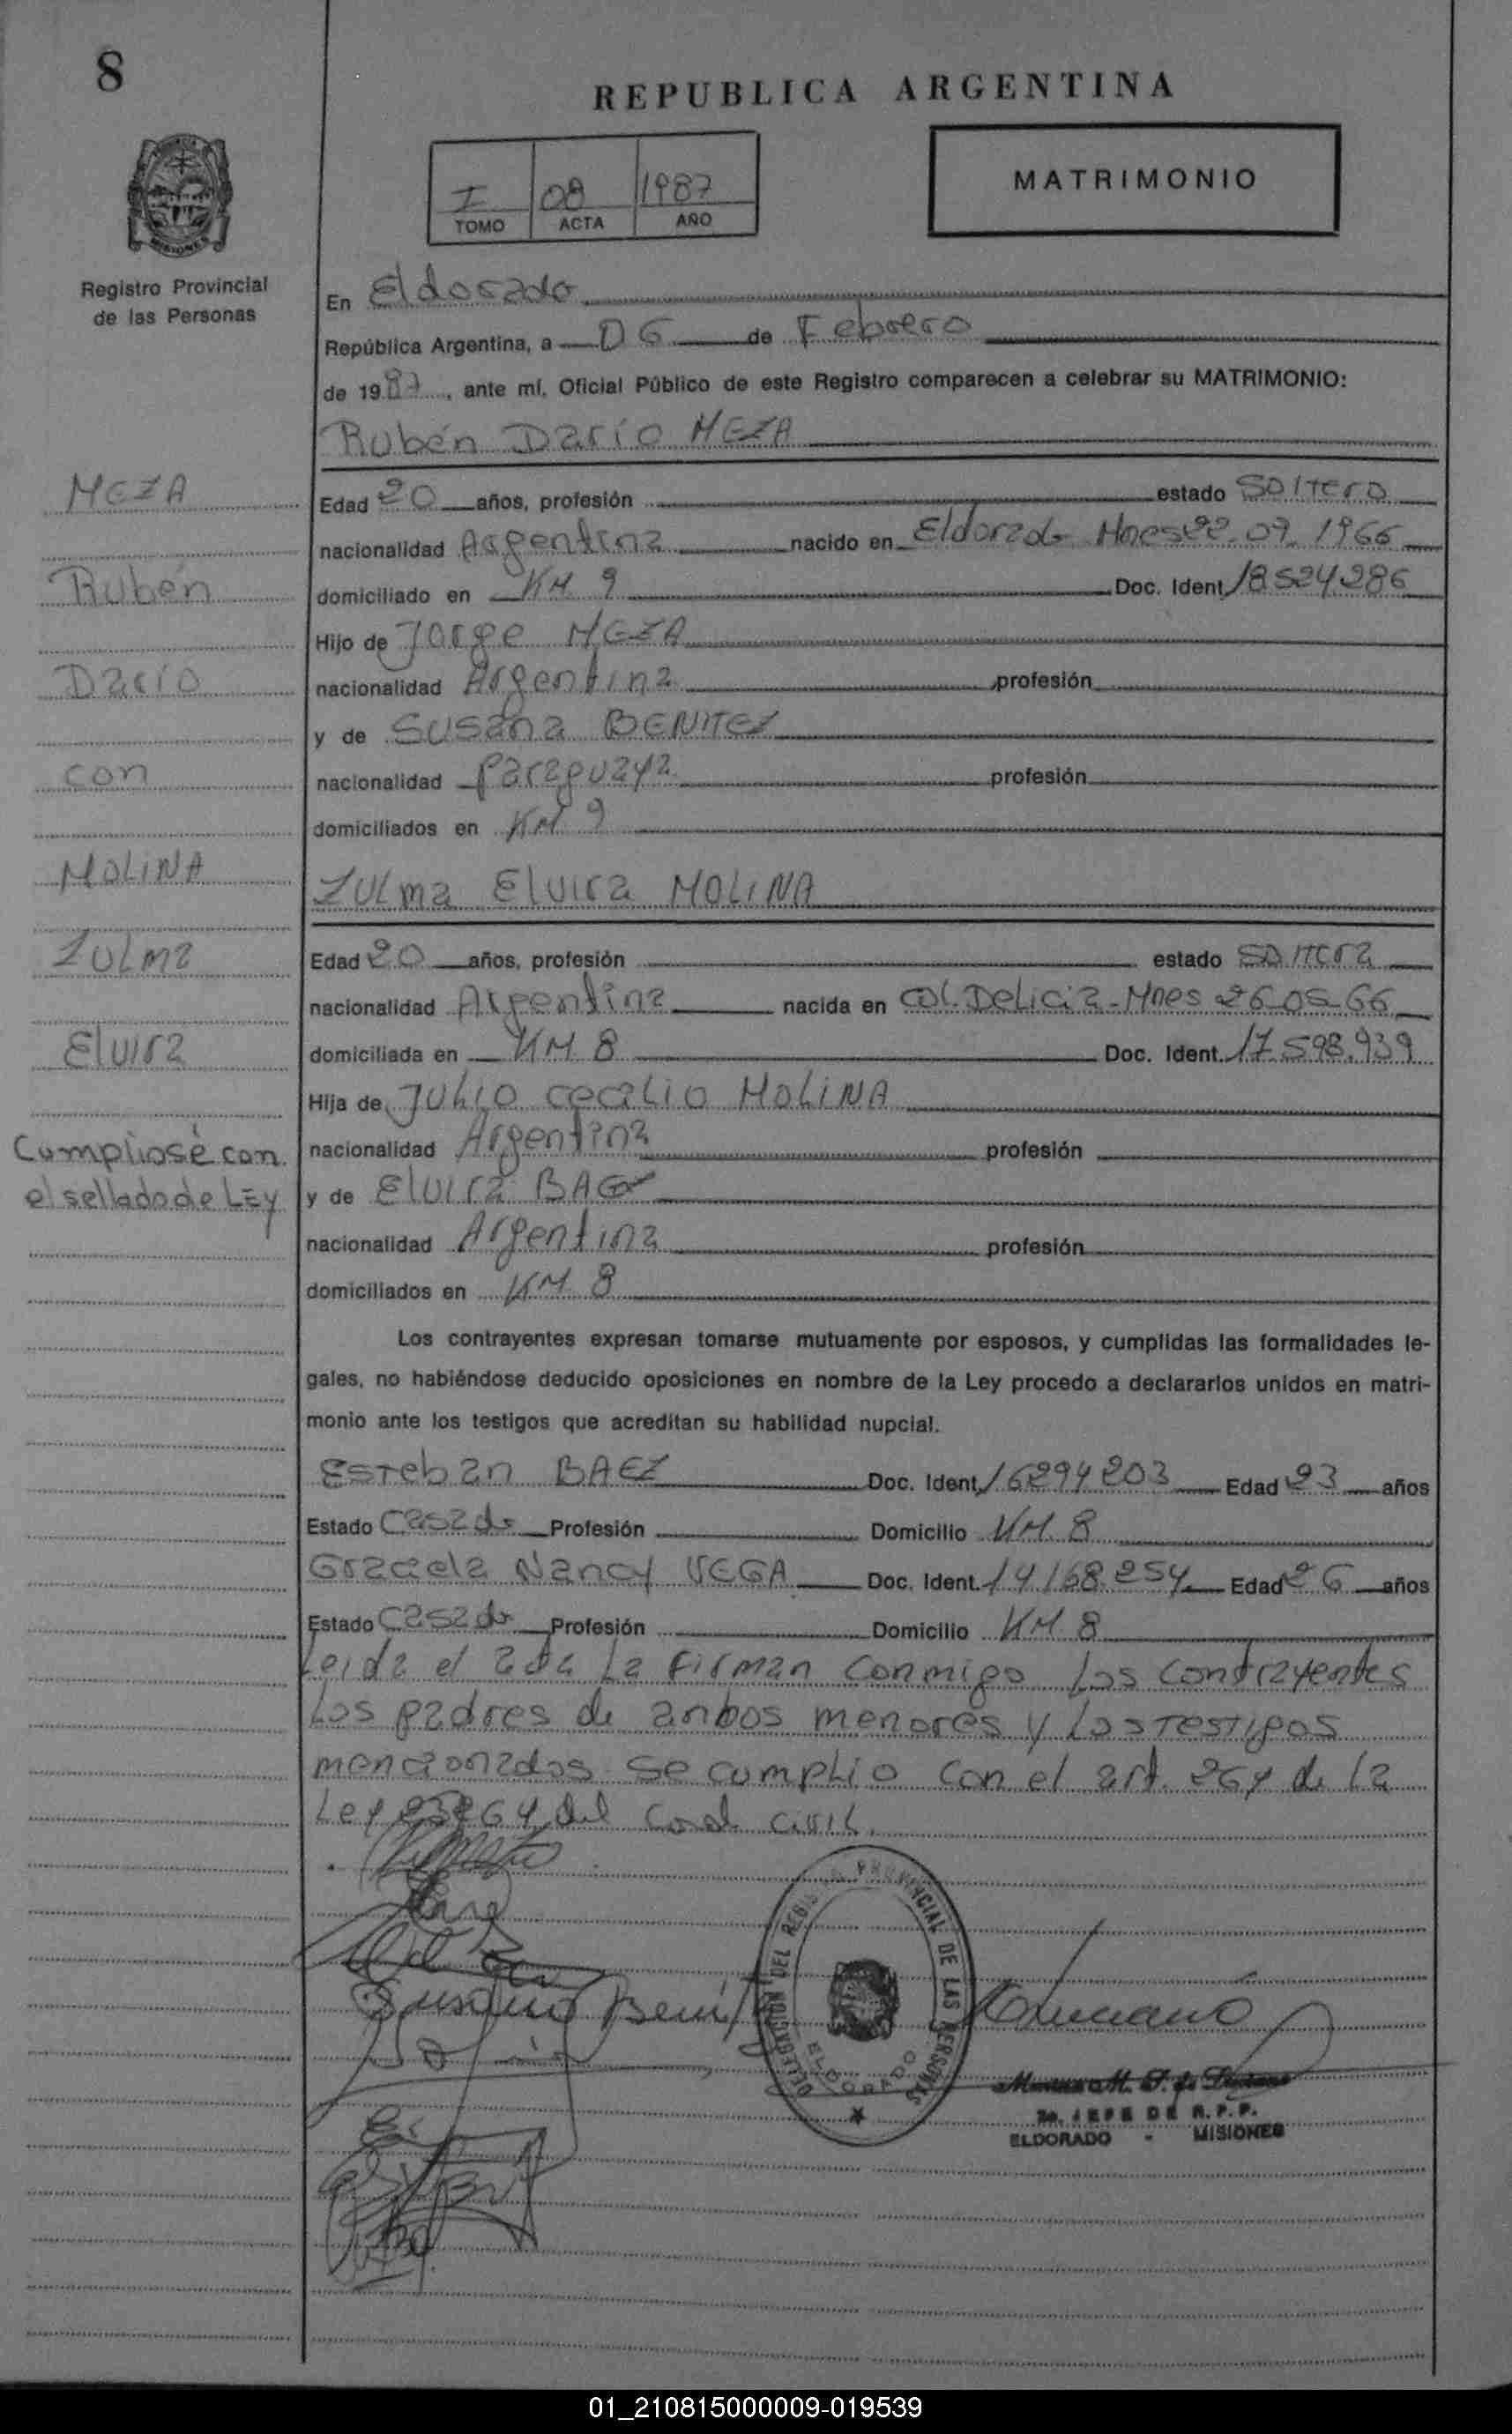 8
REPUBLICA ARGENTINA
MISIONES
Registro Provincial
de las Personas
I 08 1987
TOMO ACTA AÑO
MATRIMONIO
En Eldorado
República Argentina, a 06 de Febrero
de 1987, ante mí, Oficial Público de este Registro comparecen a celebrar su MATRIMONIO:
Rubén Darío MEZA
MEZA
Rubén
Darío
con
MOLINA
ZULma
Elvira
Cumpliose con
el sellado de LEy
Edad 20 años, profesión estado SOLTero
nacionalidad Argentina nacido en Eldorado Mnes 22-07-1966
domiciliado en KM 9 Doc. Ident. 18524286
Hijo de Jorge MEZA
nacionalidad Argentina profesión
y de Susana BENITEZ
nacionalidad paraguaya profesión
domiciliados en KM 9
ZULma Elvira MOLINA
Edad 20 años, profesión estado SOLTera
nacionalidad Argentina nacida en COL. DeLicia-Mnes 26-05-66
domiciliada en KM 8 Doc. Ident. 17.598.939
Hija de JULIO ceciLio MOLINA
nacionalidad Argentina profesión
y de Elvira BAEZ
nacionalidad Argentina profesión
domiciliados en KM 8
Los contrayentes expresan tomarse mutuamente por esposos, y cumplidas las formalidades le-
gales, no habiéndose deducido oposiciones en nombre de la Ley procedo a declararlos unidos en matri-
monio ante los testigos que acreditan su habilidad nupcial.
Esteban BAEZ Doc. Ident. 16294203 Edad 23 años
Estado Casado Profesión Domicilio KM 8
Graciela Nancy VEGA Doc. Ident. 14168254 Edad 26 años
Estado Casado Profesión Domicilio KM 8
Leida el acta La firman conmigo Los contrayentes
Los padres de anbos menores y Los Testigos
mencionados se cumpLio con el art. 264 de La
Ley 23264 del civiL.
Susana Benit
Luciano
DELEGACION DEL REGISTRO PROVINCIAL DE LAS PERSONAS
ELDORADO
2o. JEFE DE R.P.P.
ELDORADO - MISIONES
01_210815000009-019539